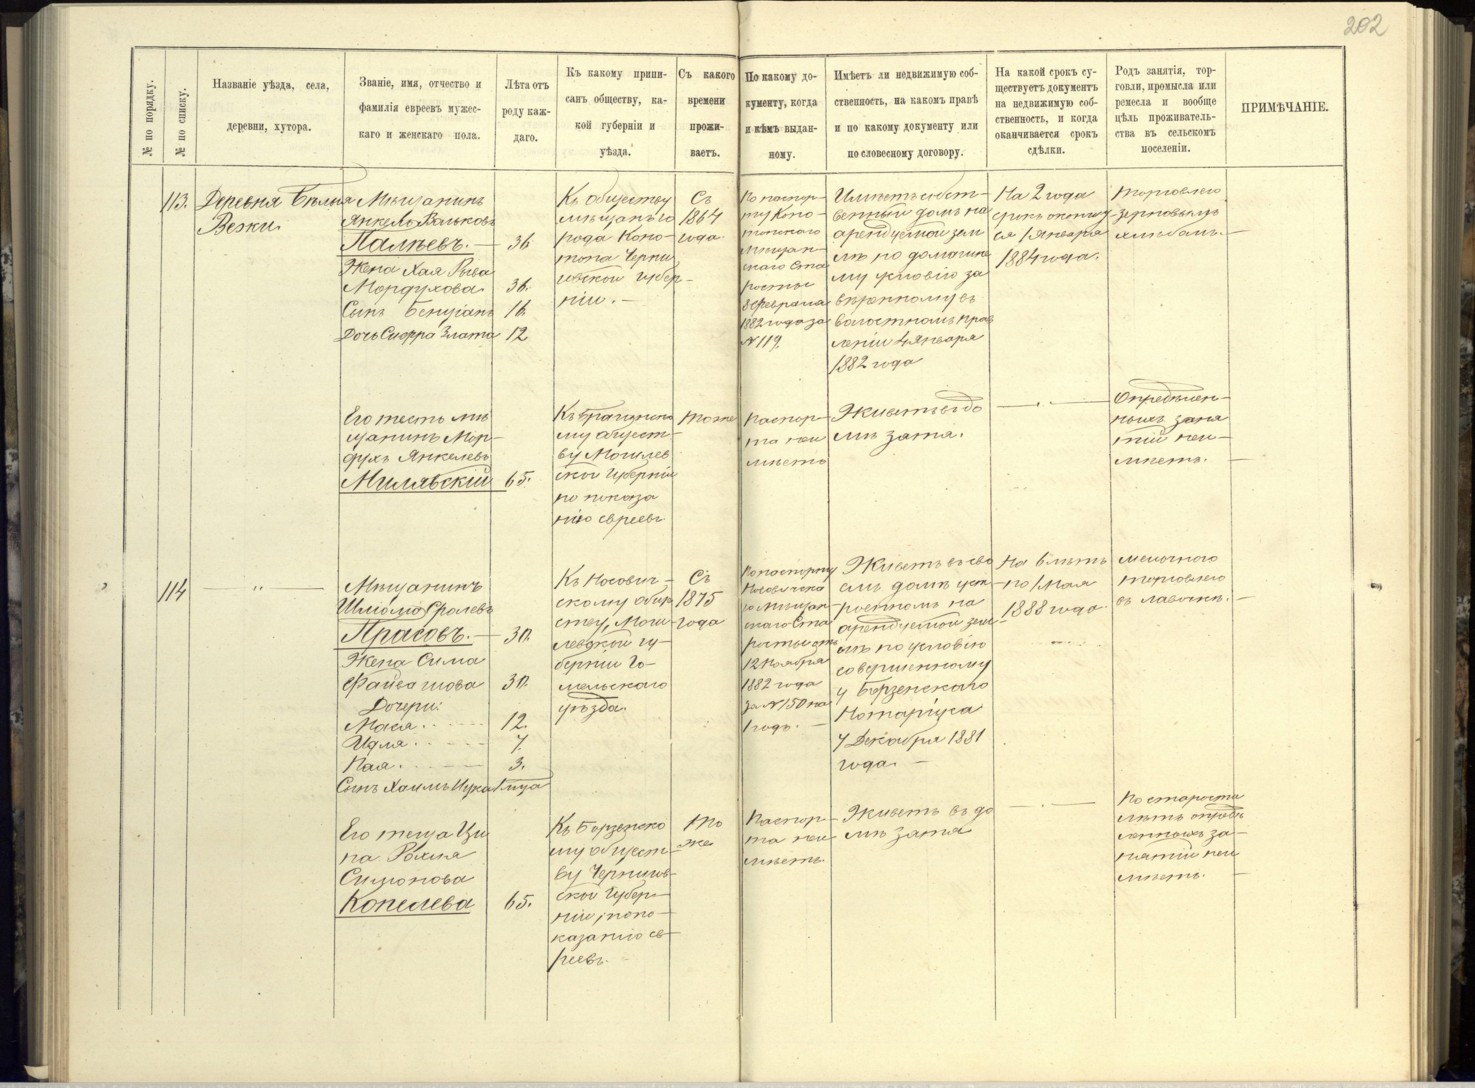 202
№ по порядку.
№ по списку.
Названіе уѣзда, села,
деревни, хутора.
Званіе, имя, отчество и
фамилія евреевъ мужес-
каго и женскаго пола.
Лѣта отъ
роду каж-
даго.
Къ какому припи-
санъ обществу, ка-
кой губерніи и
уѣзда.
Съ какого
времени
прожи-
ваетъ.
По какому до-
кументу, когда
и кѣмъ выдан-
ному.
Имѣетъ ли недвижимую соб-
ственность, на какомъ правѣ
и по какому документу или
по словесному договору.
На какой срокъ су-
ществуетъ документъ
на недвижимую соб-
ственность, и когда
оканчивается срокъ
сдѣлки.
Родъ занятія, тор-
говли, промысла или
ремесла и вообще
цѣль проживатель-
ства въ сельскомъ
поселеніи.
ПРИМѢЧАНІЕ.
113.
Деревня Бѣлыя
Вежи.
Мѣщанинъ
Янкель Вольковъ
Палѣевъ. — 36
Жена Хая Рыва
Мордухова 36.
Сынъ Бенціанъ 16
Дочь Сифра Злата 12
Къ обществу
мѣщанъ го
рода Коно-
топа Черни
говской губер-
ніи. —
Съ
1864
года.
По паспор-
ту Коно-
топскаго
мѣщан-
скаго Ста
росты
8 Февраля
1882 года за
№ 119.
Имѣетъ собст-
венный домъ на
арендуемой зем
лѣ по домашне
му условію за
вѣренному въ
волостномъ прав
леніи 4 Января
1882 года
На 2 года
срокъ окончит
ся 1 Января
1884 года.
Торговлею
зерновымъ
хлѣбомъ. —
Его тесть мѣ
щанинъ Мор-
духъ Янкелевъ
Милявскій 65.
Къ Брагинско
му общест-
ву Могилев
ской Губерніи
по показа
нію евреевъ
тоже
Паспор-
та неи
мѣетъ
Живетъ въ до
мѣ зятя.
— „ —
Опредѣлен-
ныхъ заня
тій неи-
мѣетъ. —
114
— „ —
Мѣщанинъ
Шліома Фролевъ
Прасовъ. — 30.
Жена Сима
Файвашова 30.
Дочери:
Мася. 12.
Идля 7.
Пая. 3.
Сынъ Хаимъ Ицка 1 года
Къ Носович-
скому обще
ству, Моги-
левской гу-
берніи Го-
мельскаго
уѣзда.
Съ
1875
года
По паспорту
Носовичска
го Мѣщан-
скаго Ста
росты отъ
12 Ноября
1882 года
за № 150 на
1 годъ. —
Живетъ въ сво
емъ домѣ уст-
роенномъ на
арендуемой зем
лѣ по условію
совершенному
у Борзенскаго
Нотаріуса
7 Декабря 1881
года. —
На 6 лѣтъ
по 1 Мая
1888 года.
мелочною
торговлею
въ лавочкѣ. —
Его теща Ци
па Рохля
Симонова
Копелева 65.
Къ Борзенско
му общест-
ву Чернигов-
ской Губер-
ніи, по по-
казанію ев-
реевъ.
То
же
Паспор-
та неи
мѣетъ.
Живетъ въ до
мѣ зятя
— „ —
По старости
лѣтъ опредѣ
ленныхъ за-
нятій неи
мѣетъ. —